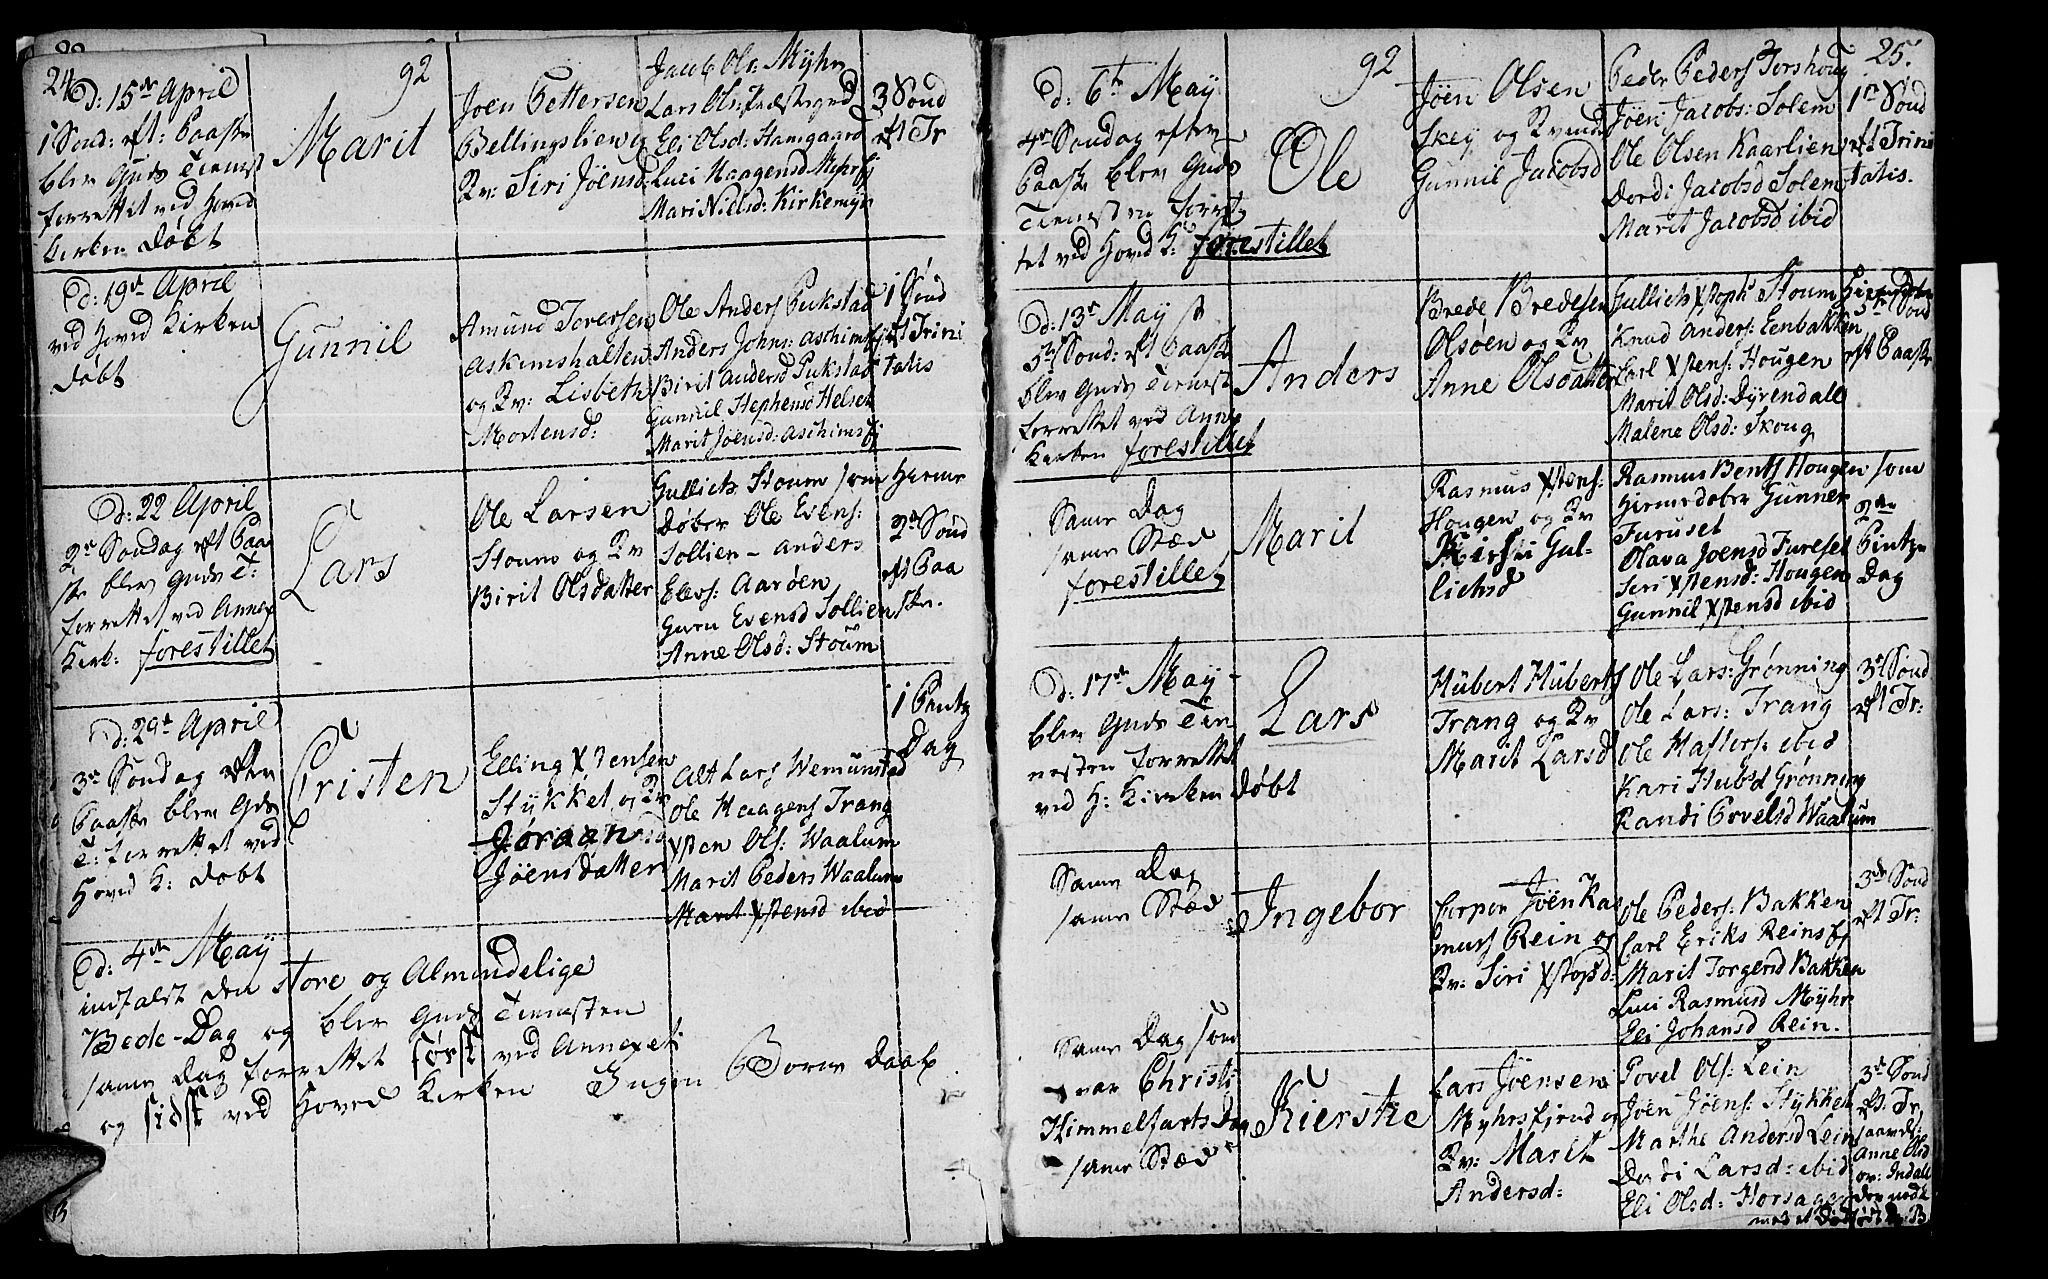 24.
92
D: 15de April
1 Sond: eft: Paaske
blev Guds Tienest
forrettet ved Hoved
Kirken Døbt
Marit
Joen Pettersen
Bellingslien og
Kv: Siri Jöensd:
Jacob Ols: Mÿhr
Lars Ols:
Eli Olsd: Hamgaard
Luci Haagensd Myhrsfj
Mari Nielsd: Kirkemÿr
3 Sønd
eft Tr
D: 19de April
ved Hoved Kirken
Døbt
Gunnil
Amund Iversen
Askimshalten
og Kv: Lisbeth
Mortensd:
Ole Anders Pukstad
Anders Johns: Aschimsfj
Birit Andersd Pukstad
Gunnil Stephensd Helset
Marit Jöensd: Aschimsfj
1 Sönd
eft Trini
tatis
D: 22 April
2de Søndag eft Paa
ske blev Guds T:
forrettet ved Annex
Kirk: forestillet
Lars
Ole Larsen
Stoum og Kv
Birit Olsdatter
Gullich Stoum som Hieme
Døber Ole Evens:
Sollien - Anders
Elevs: Aarøen
Guru Evensd Sollien
Anne Olsd: Stoum
2de Sönd
eft Paa
ske.
D: 29de April
3de Søndag efter
Paaske blev Guds
T: forrettet ved
Hoved K: Døbt
Cristen
Elling Xstensen
Stÿkket og Kv
Jöraan
Jöensdatter
Alt Lars Wemundstad
Ole Haagens Trang
Xsten Ols: Waalum
Marit Peders Waalum
Marit Xstensd ibid
1 Pintze
Dag
D: 4de Maÿ
indfalst den Store og Almindelige
Bede-Dag og blev Guds Tienesten
samme Dag forrettet først ved Annexet
og sidst ved Hoved Kirken Ingen Börne Daab
25.
92
D. 6te Maÿ
4de Søndag efter
Paaske blev Guds
Tienesten forret
tet ved Hoved K: forestillet
Ole
Jöen Olsen
Skey og Kvinde
Gunnil Jacobsd
Peder Peders Torshoug
Jöen Jacobs: Solem
Ole Olsen Kaarlien
Dordi Jacobsd Solem
Marit Jacobsd ibid
1te Sönd
eft Trini
tatis.
D: 13de Maÿ
5te Sönd: eft Paaske
blev Guds Tienest
forrettet ved Annex
Kirken forestillet
Anders
Brede Bredesen
Olsöen og Kv
Anne Olsdatter
Gullich Xstoph Stoum
Knud Anders: Eenbakken
Carl Xstens: Hougen
Marit Olsd: Dÿrendall
Malene Olsd: Skoug
5te Sönd
eft Paaske
Samme Dag
samme Stæd
forestillet
Marit
Rasmus Xstens:
Hougen og Kv
Kirsti Gul-
lichsd
Rasmus Bents Hougen som
Hiemedøber Gunner
Furuset
Olava Joensd Furuset
Siri Xstensd: Hougen
Gunnil Xstensd ibid
2den
Pintze
Dag
D: 17de Maÿ
blev Guds Tien
nesten forrettet
ved H: Kirken Døbt
Lars
Hübert Hüberts
Trang og Kv
Marit Larsd
Ole Lars: Grönning
Ole Lars: Trang
Ole Hafters: ibid
Kari Hubsd Grönning
Randi Povelsd Waalum
3de Sönd
eft Tr:
Samme Dag
samme Stæd
Ingebor
Corpor Jöen Ras
muss Rein og
Kv: Siri Xstopsd:
Ole Peders: Bakken
Carl Eriks Reinsfj
Marit Torgersd Bakken
Luci Rasmusd Mÿhr
Eli Johansd Rein.
3de Sönd
eft Tr:
Samme Dag som
var Christi
Himmelfarts Dag
samme Stæd
Kierstie
Lars Jöensen
Mÿhrsfjend og
Kv: Marit
Andersd:
Povel Ols: Lein
Jöen Jöens: Stÿkket
Marthe Andersd Lein
Dordi Larsd: ibid
Eli Olsd: Horsager
3de Sönd
eft. Tr,
Anne Olsd